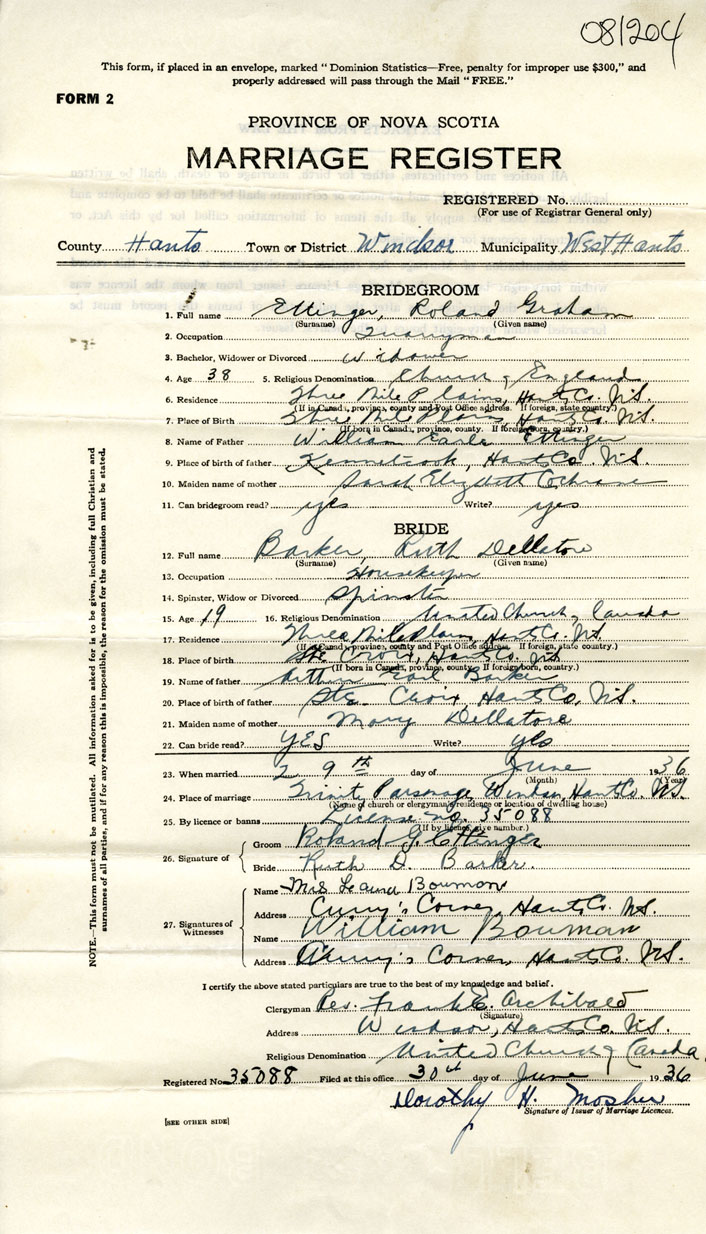 081204
This form, if placed in an envelope, marked "Dominion Statistics—Free, penalty for improper use $300," and
properly addressed will pass through the Mail "FREE."
FORM 2
PROVINCE OF NOVA SCOTIA
MARRIAGE REGISTER
REGISTERED No.
(For use of Registrar General only)
County Hants Town or District Windsor Municipality West Hants
BRIDEGROOM
1. Full name Ettinger, Roland Graham
(Surname) (Given name)
2. Occupation Quarryman
3. Bachelor, Widower or Divorced Widower
4. Age 38 5. Religious Denomination Church of England
6. Residence Three Mile Plains, Hants Co. N.S.
(If in Canada, province, county and Post Office address. If foreign, state country.)
7. Place of Birth Three Mile Plains, Hants Co. N.S.
(If born in Canada, province, county. If foreign born, country.)
8. Name of Father William Earle Ettinger
9. Place of birth of father Kennetcook, Hants Co. N.S.
10. Maiden name of mother Sarah Elizabeth Cochrane
11. Can bridegroom read? yes Write? yes
BRIDE
12. Full name Barker, Ruth Dellatore
(Surname) (Given name)
13. Occupation Housekeeper
14. Spinster, Widow or Divorced Spinster
15. Age 19 16. Religious Denomination United Church of Canada
17. Residence Three Mile Plains, Hants Co. N.S.
(If in Canada, province, county and Post Office address. If foreign, state country.)
18. Place of birth Ste. Croix, Hants Co. N.S.
(If born in Canada, province, county. If foreign born, country.)
19. Name of father Arthur Earl Barker
20. Place of birth of father Ste. Croix, Hants Co, N.S.
21. Maiden name of mother Mary Dellatore
22. Can bride read? YES Write? yes
23. When married 29th day of June 1936
(Month) (Year)
24. Place of marriage Trinity Parsonage, Windsor, Hants Co. N.S.
(Name of church or clergyman's residence or location of dwelling house)
25. By licence or banns License no. 35088
(If by licence, give number.)
26. Signature of
Groom Roland G. Ettinger
Bride Ruth D. Barker.
27. Signatures of Witnesses
Name Mrs Bouman
Address Curry's Corner, Hants Co. N.S.
Name William Bouman
Address Curry's Corner, Hants Co. N.S.
NOTE.—This form must not be mutilated. All information asked for is to be given, including full Christian and
surnames of all parties, and if for any reason this is impossible, the reason for the omission must be stated.
I certify the above stated particulars are true to the best of my knowledge and belief.
Clergyman Rev. Frank E. Archibald
(Signature)
Address Windsor, Hants Co. N.S.
Religious Denomination United Church of Canada
Registered No. 35088 Filed at this office 30th day of June 1936
Dorothy H. Mosher
Signature of Issuer of Marriage Licences.
[SEE OTHER SIDE]